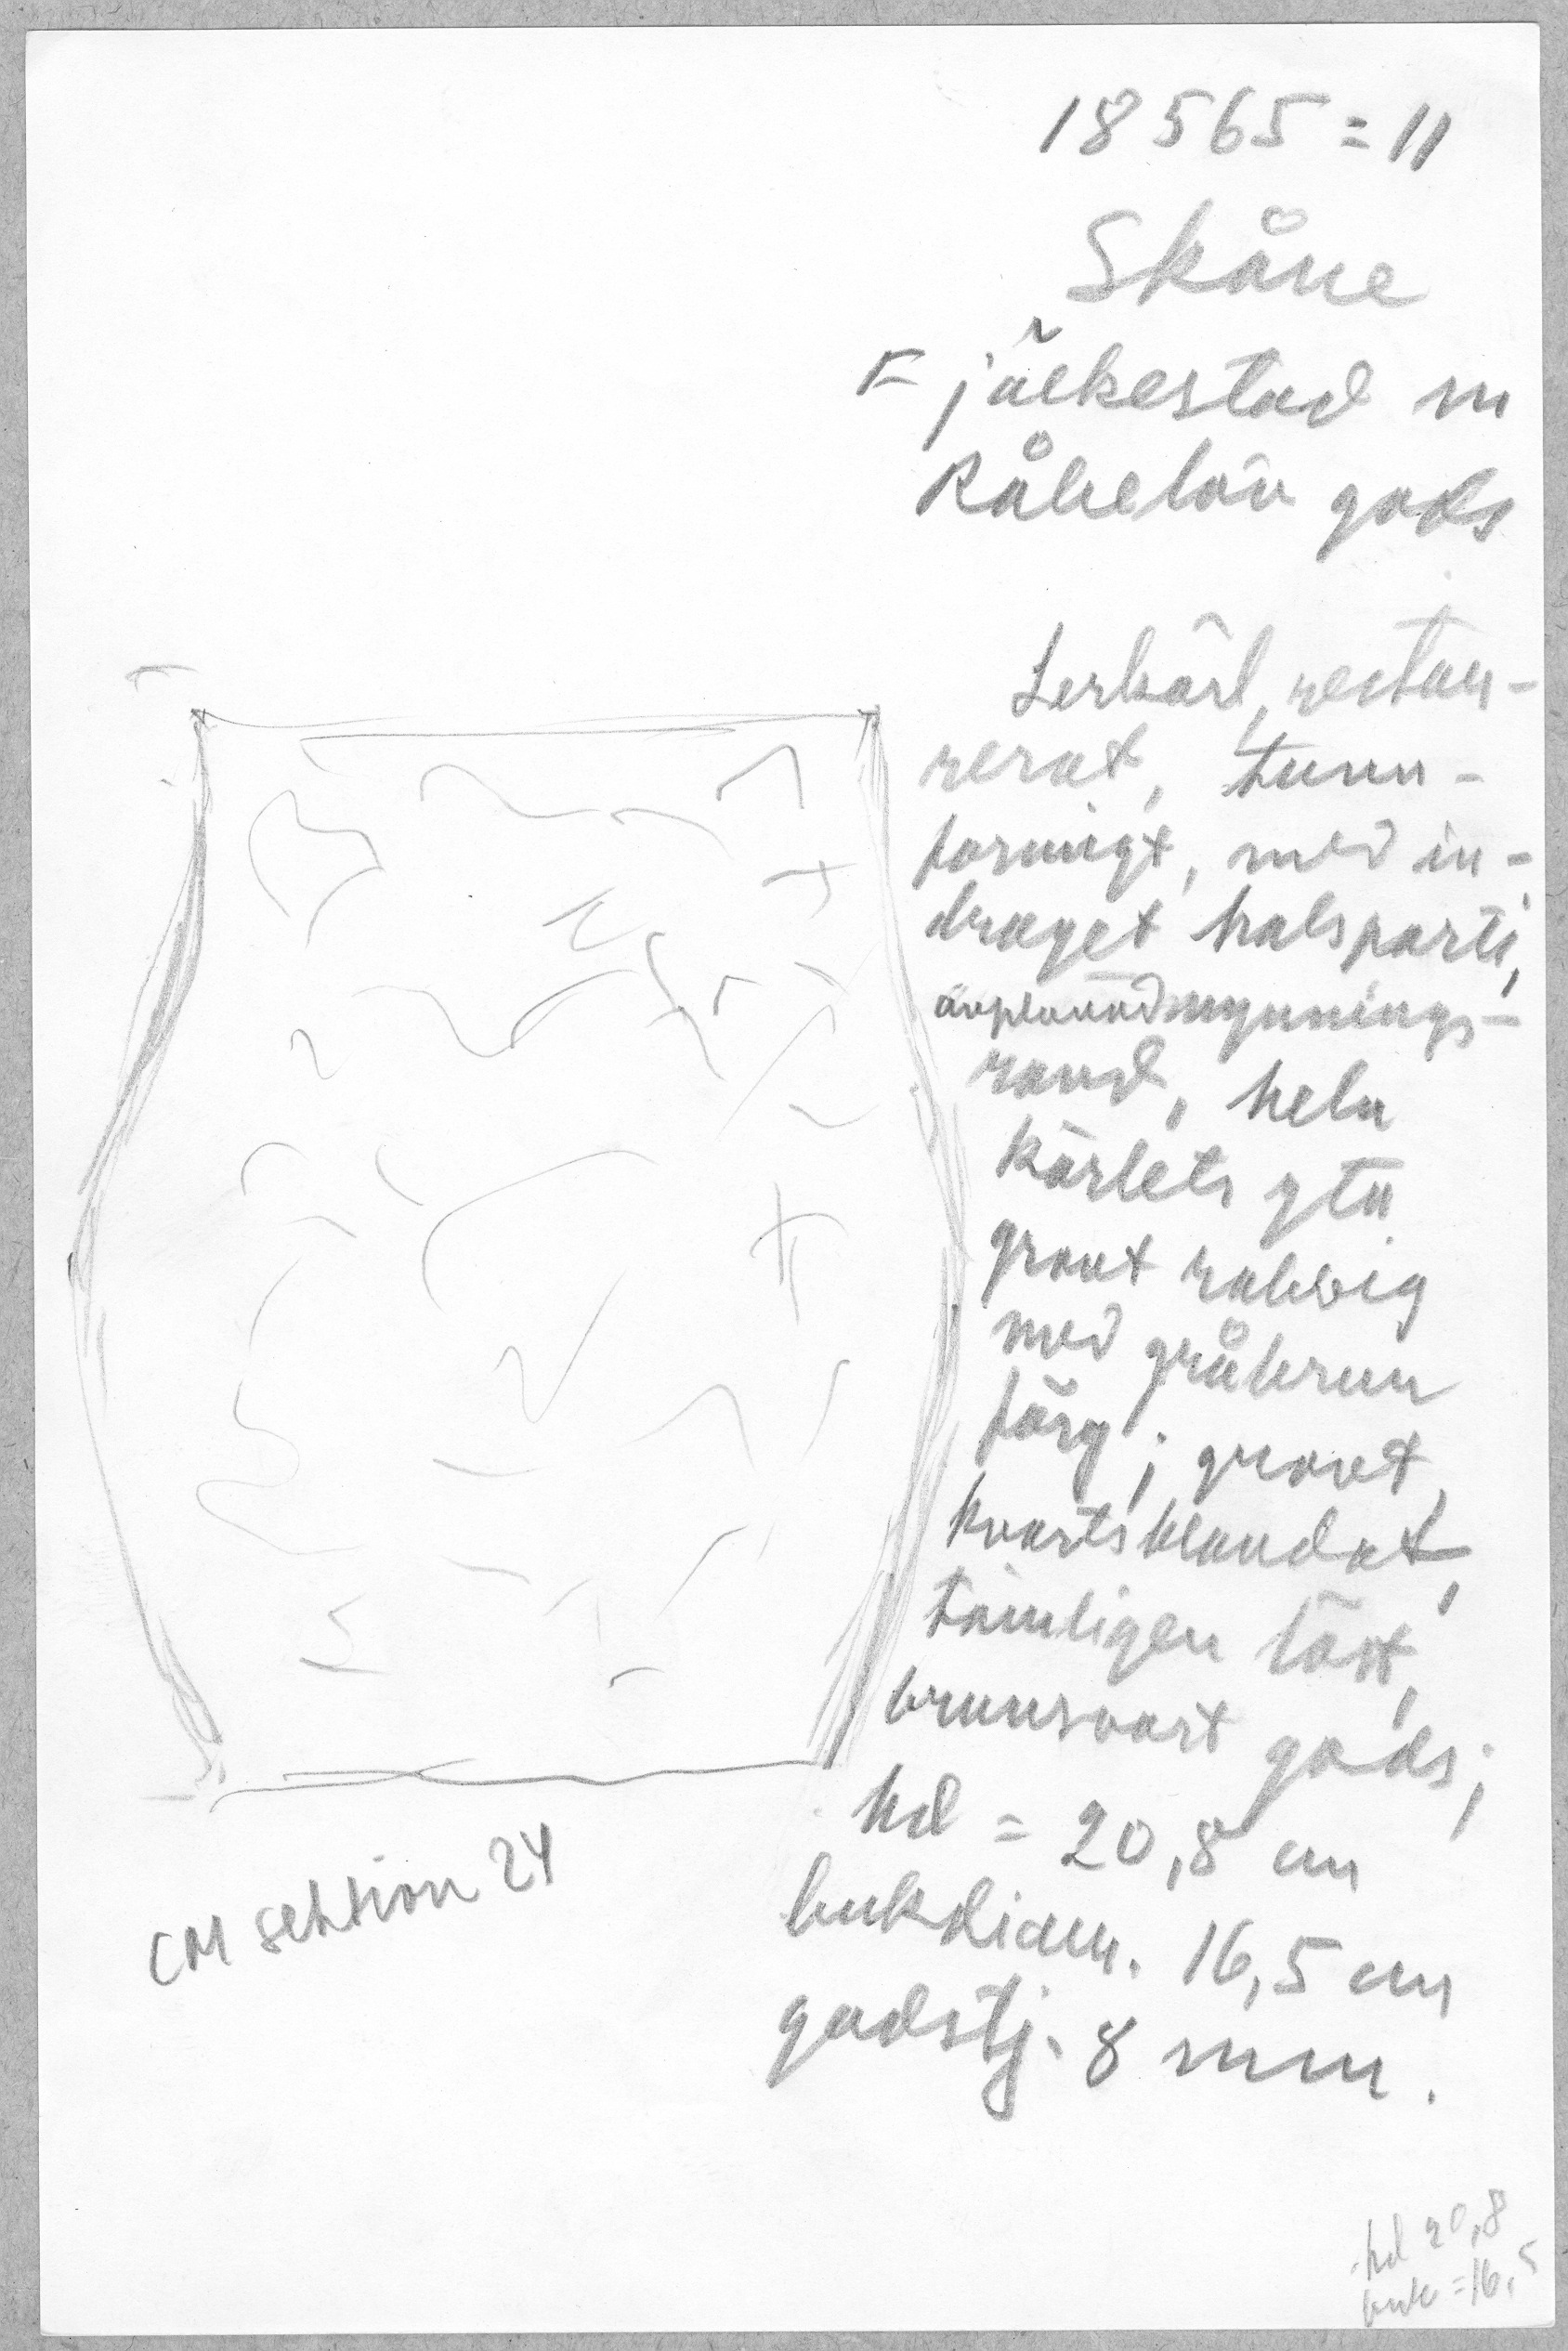 18565 = 11
Skåne
Fjälkestad sn
Råbelöv gods
Lerkärl, restau-
rerat, tunn-
formigt, med in-
draget halsparti,
avplanad mynnings-
rand, hela
kärlets yta
grovt rabbig
med gråbrun
färg; grovt,
kvartsblandat,
tämligen löst,
brunsvart gods;
hd = 20,8 cm
bukdiam. 16,5 cm
godstj. 8 mm.
CM sektion 24
hd 20,8
buk = 16,5